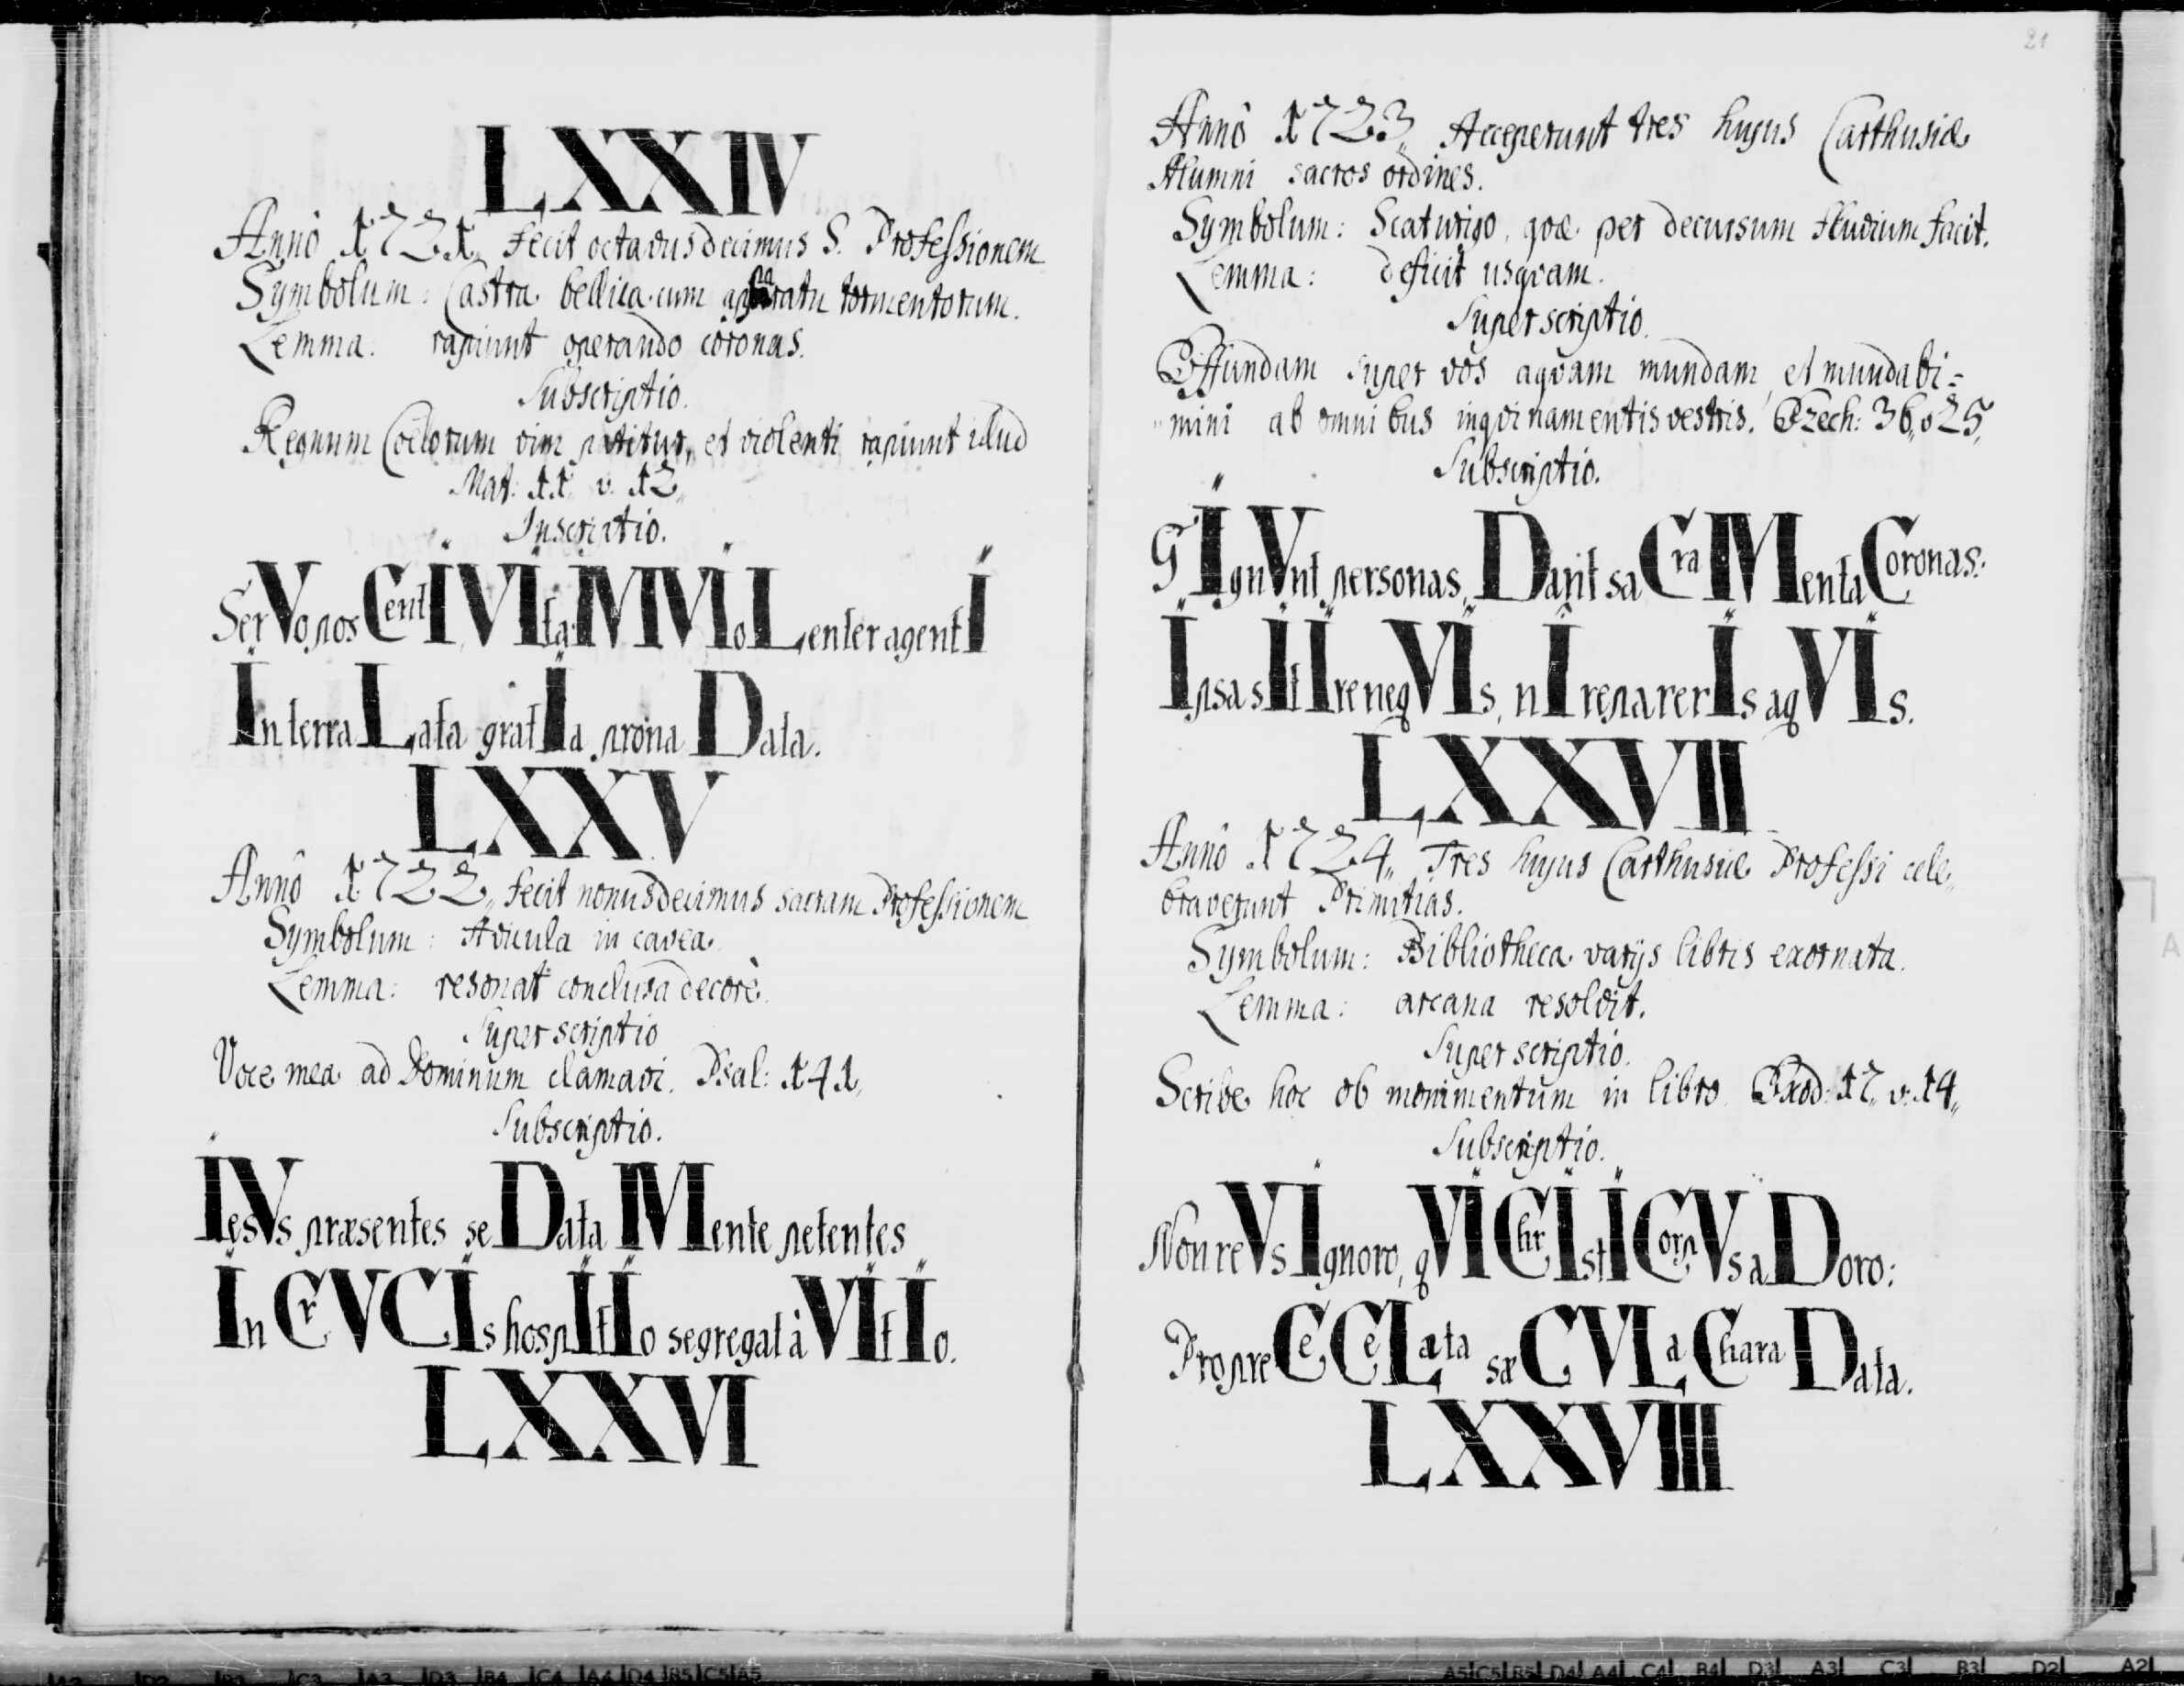 LXXIV
Annô 1721,, fecit octavusdecimus S. Professionem
Symbolum: Castra bellica cum apparatu tormentorum.
Lemma: rapiunt operando coronas.
Subscriptio.
Regnum Coelorum vim patitur, et violenti rapiunt illud
Mat: 11. v. 12,,
Inscriptio.
SerVo pos CentIVIta MMVIoLenter agentI
In terra Lata gratIa prona Data.
LXXV
Annô 1722,, fecit nonusdecimus sacram Professionem
Symbolum: Avicula in cavea.
Lemma: resonat conclusa decorè.
Superscriptio
Voce mea ad Dominum clamavi. Psal: 141,,
Subscriptio.
IesVs præsentes se Data Mente petentes
In CrVCIs hospItIo segregat à VItIo.
LXXVI
21
Annô 1723,, Acceperunt tres hujus Carthusiæ
Alumni sacros ordines.
Symbolum: Scaturigo, qvæ per decursum fluvium facit.
Lemma: deficit usqvam.
Superscriptio.
Effundam super vos aqvam mundam, et mundabi=
mini ab omnibus inqvinamentis vestris. Ezech: 36,, v 25,,
Subscriptio.
GIgnVnt personas, Dant saCraMenta Coronas:
Ipsa sItIre neqVIs, nI reparerIs aqVIs.
LXXVII
Annô 1724,, Tres hujus Carthusiæ Professi cele,,
braverunt Primitias.
Symbolum: Bibliotheca varijs libris exornata.
Lemma: arcana resolvit.
Superscriptio.
Scribe hoc ob monimentum in libro. Exod: 17,, v. 14,,
Subscriptio.
Non reVs Ignoro, qVI ChrIstI CorpVs aDoro:
Pro preCe CeLæta sæCVLa Chara Data.
LXXVIII